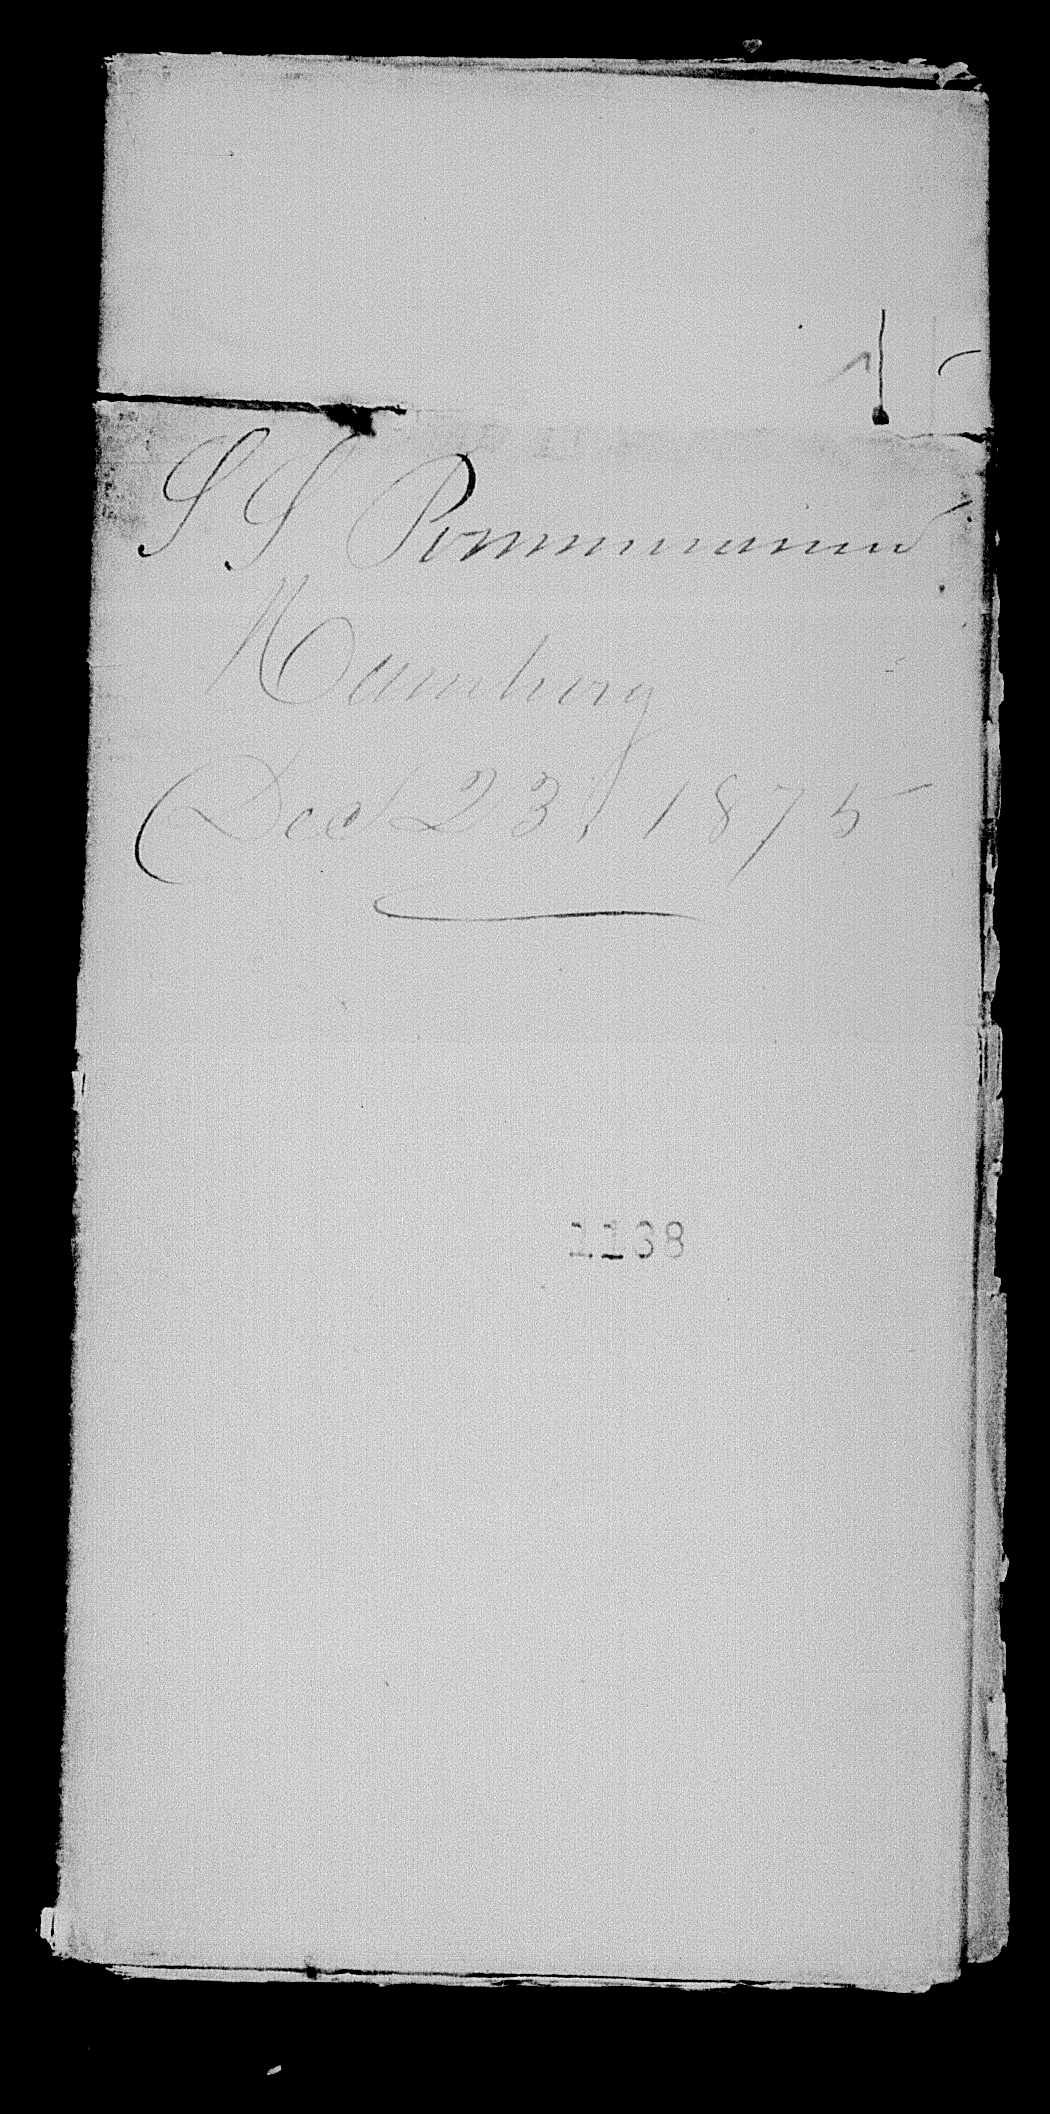 SS Pommerania
Hamburg
Dec 23, 1875
1138